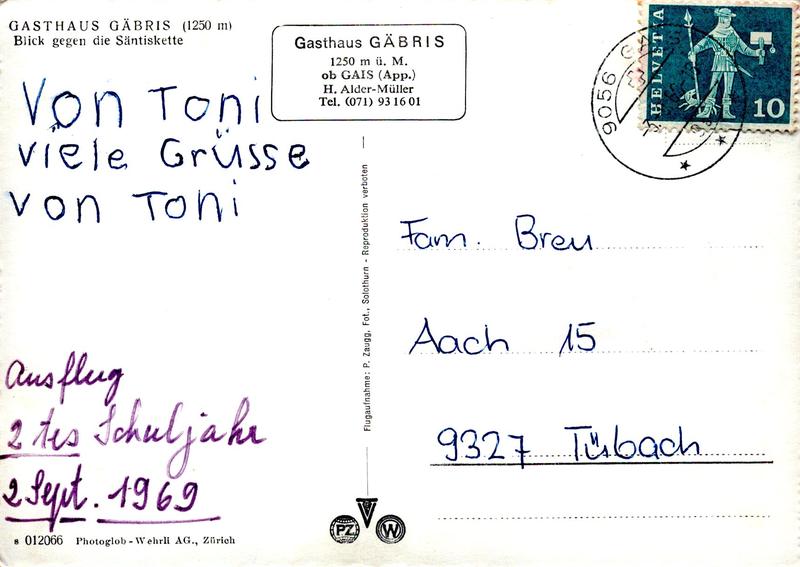 GASTHAUS GÄBRIS (1250 m)
Blick gegen die Säntiskette
Von Toni
viele Grüsse
von Toni
Ausflug
2 tes Schuljahr
2 Sept. 1969
s 012066 Photoglob-Wehrli AG., Zürich
Gasthaus GÄBRIS
1250 m ü. M.
ob GAIS (App.)
H. Alder-Müller
Tel. (071) 93 16 01
Flugaufnahme: P. Zaugg, Fot., Solothurn - Reproduktion verboten
PZ
W
HELVETIA
10
9056
Fam. Breu
Aach 15
9327 Tübach